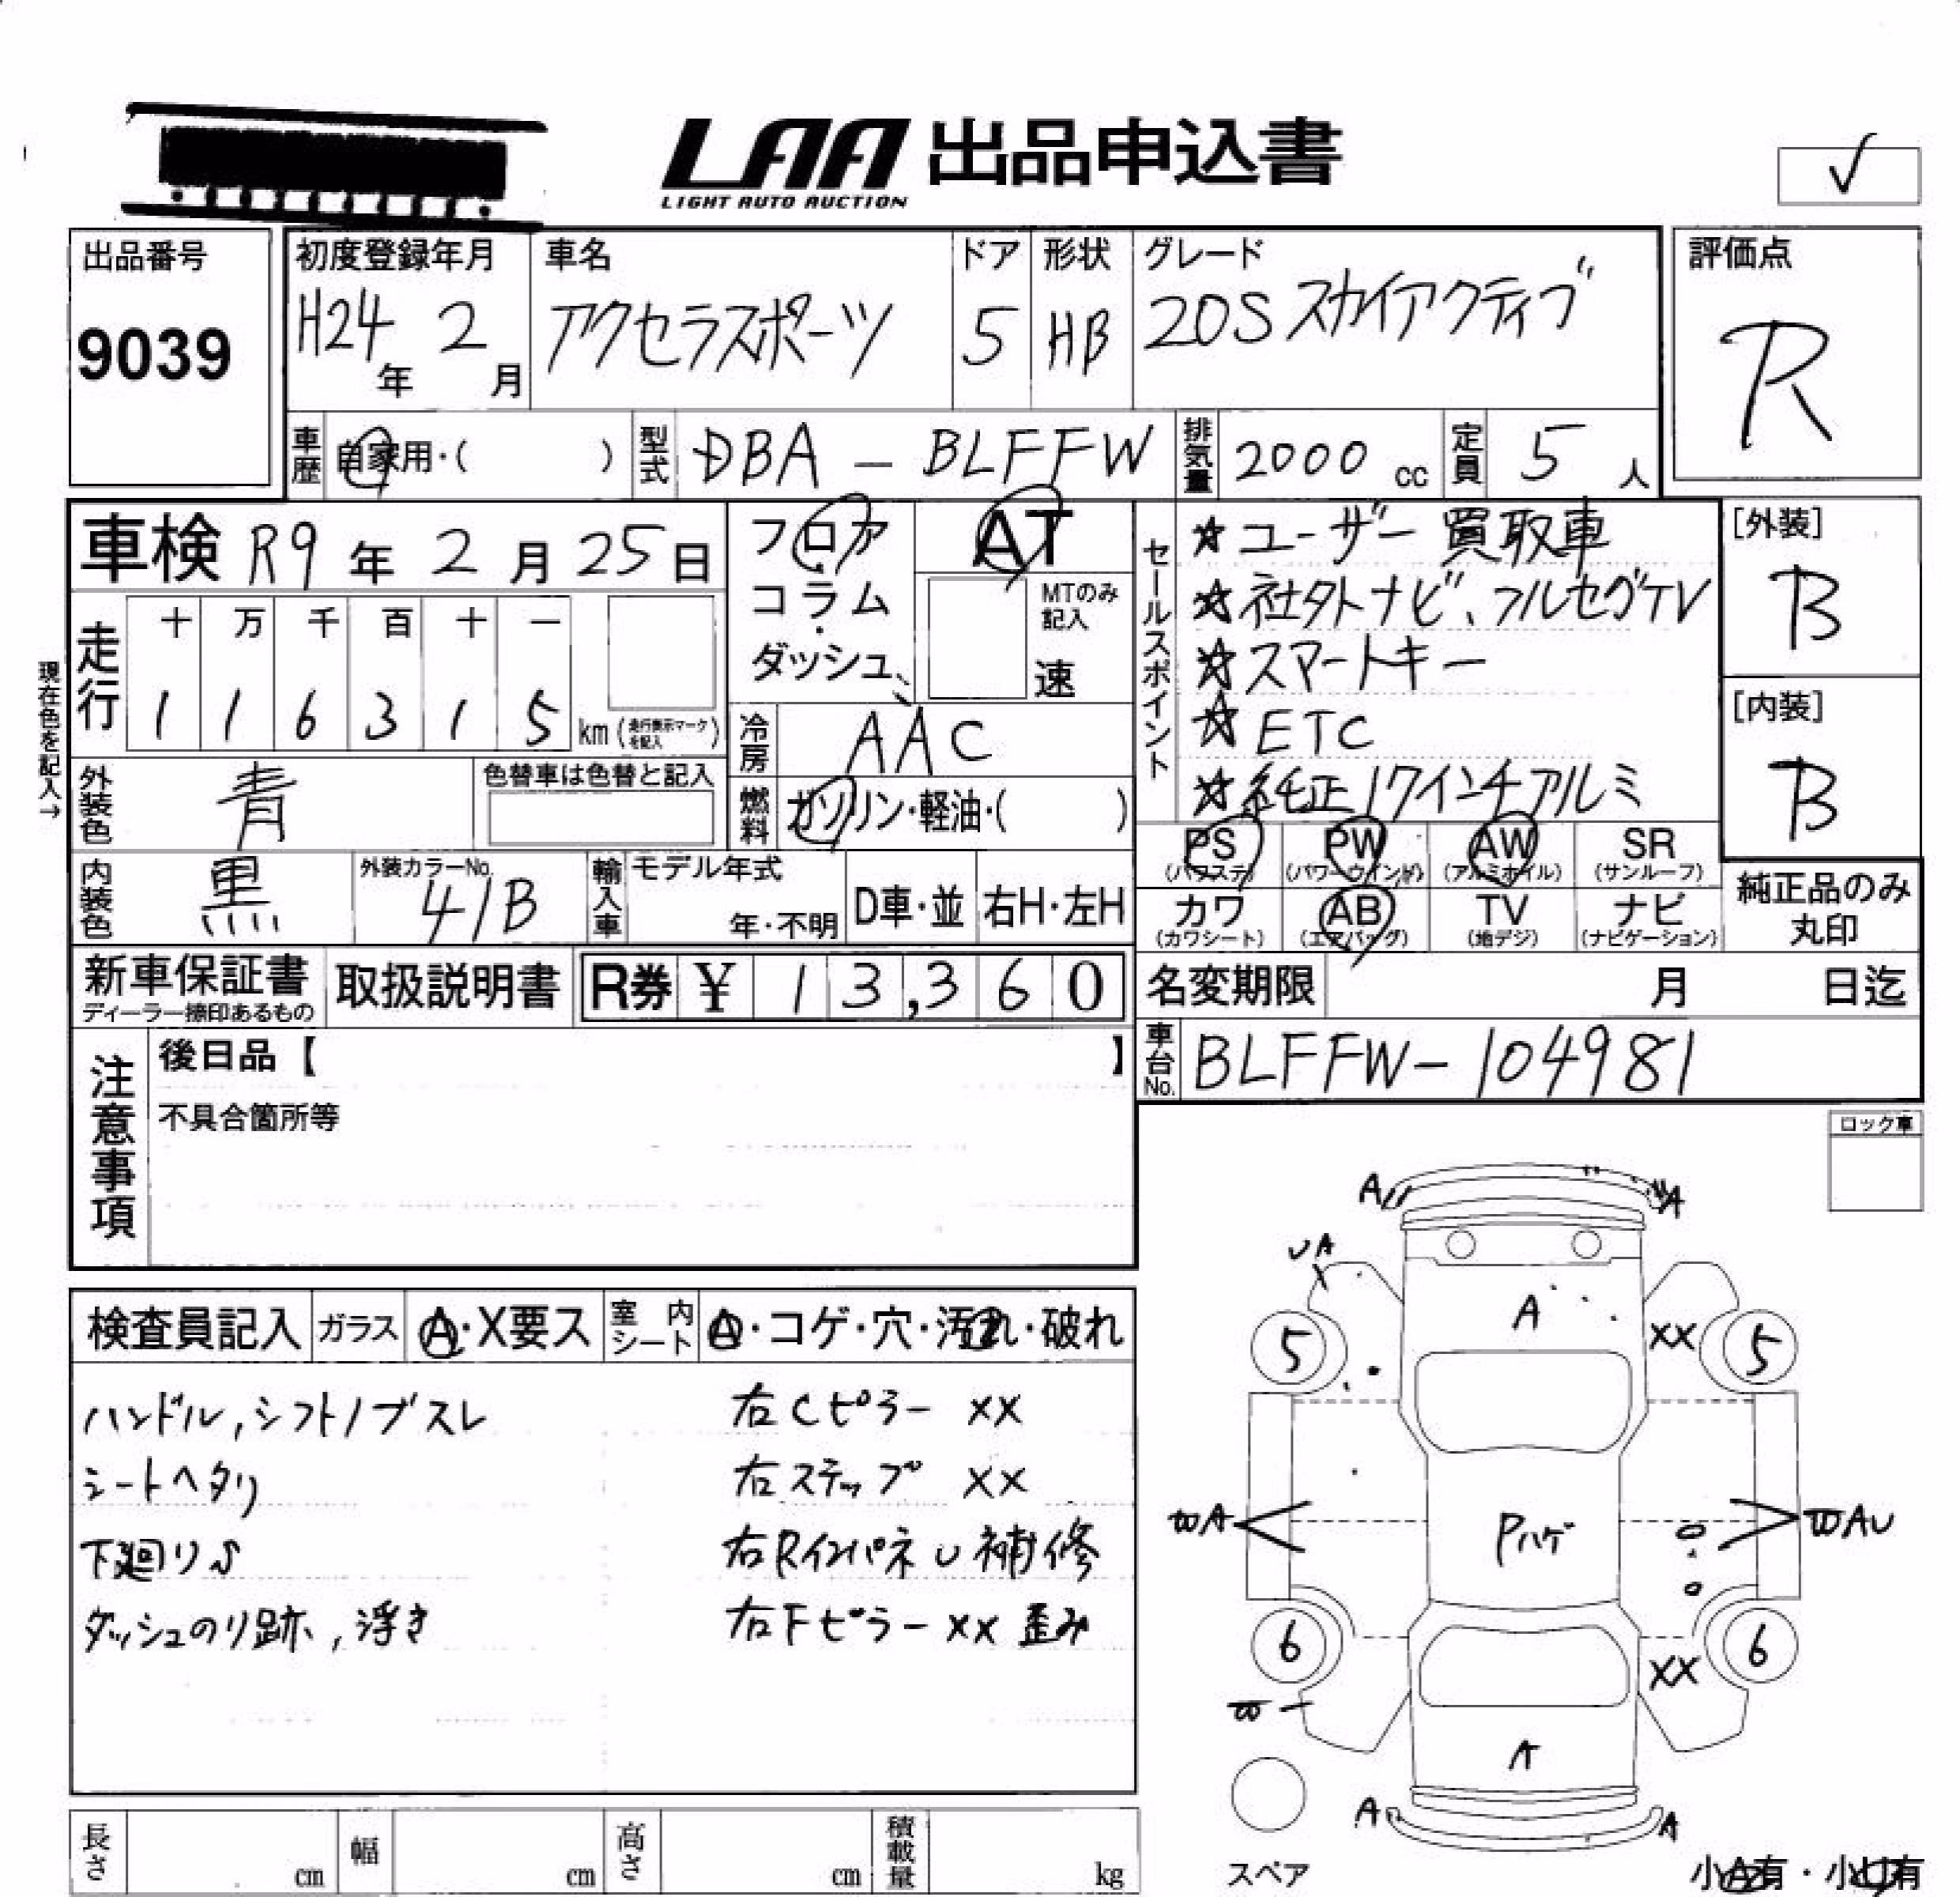 LAA 出品申込書
LIGHT AUTO AUCTION
✓
出品番号
9039
初度登録年月
H24年 2月
車名
アクセラスポーツ
ドア
5
形状
HB
グレード
20S スカイアクティブ
評価点
R
車歴
自家用・( )
型式
DBA - BLFFW
排気量
2000 cc
定員
5 人
車検 R9年 2月 25日
フロア
コラム
・
ダッシュ
AT
MTのみ
記入
速
セールスポイント
☆ユーザー買取車
☆社外ナビ、フルセグTV
☆スマートキー
☆ETC
☆純正17インチアルミ
[外装]
B
[内装]
B
現在色を記入→
走行
十 万 千 百 十 一
1 1 6 3 1 5 km
(走行表示マークを記入)
冷房
AAC
外装色
青
色替車は色替と記入
燃料
ガソリン・軽油・( )
内装色
黒
外装カラーNo.
41B
輸入車
モデル年式
年・不明
D車・並
右H・左H
PS (パワステ)
PW (パワーウインド)
AW (アルミホイル)
SR (サンルーフ)
カワ (カワシート)
AB (エアバッグ)
TV (地デジ)
ナビ (ナビゲーション)
純正品のみ
丸印
新車保証書
ディーラー捺印あるもの
取扱説明書
R券 ¥ 13,360
名変期限 月 日迄
車台No.
BLFFW-104981
注意事項
後日品【 】
不具合箇所等
ロック車
検査員記入
ガラス
A・X要ス
室内シート
A・コゲ・穴・汚れ・破れ
ハンドル,シフトノブスレ
シートヘタリ
下廻りS
ダッシュのり跡,浮き
右Cピラー XX
右ステップ XX
右Rインパネ U 補修
右Fピラー XX 歪み
A
A
UA
A
XX
5
5
WA
Pハゲ
WAU
6
6
XX
W
A
A
A
スペア
小A有・小U有
長さ cm
幅 cm
高さ cm
積載量 kg